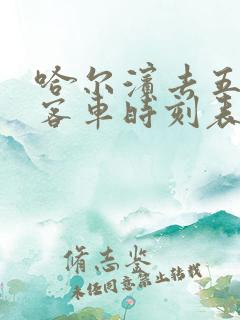 哈尔滨去五
客车时刻表
脩志鉴
未经同意禁止转载